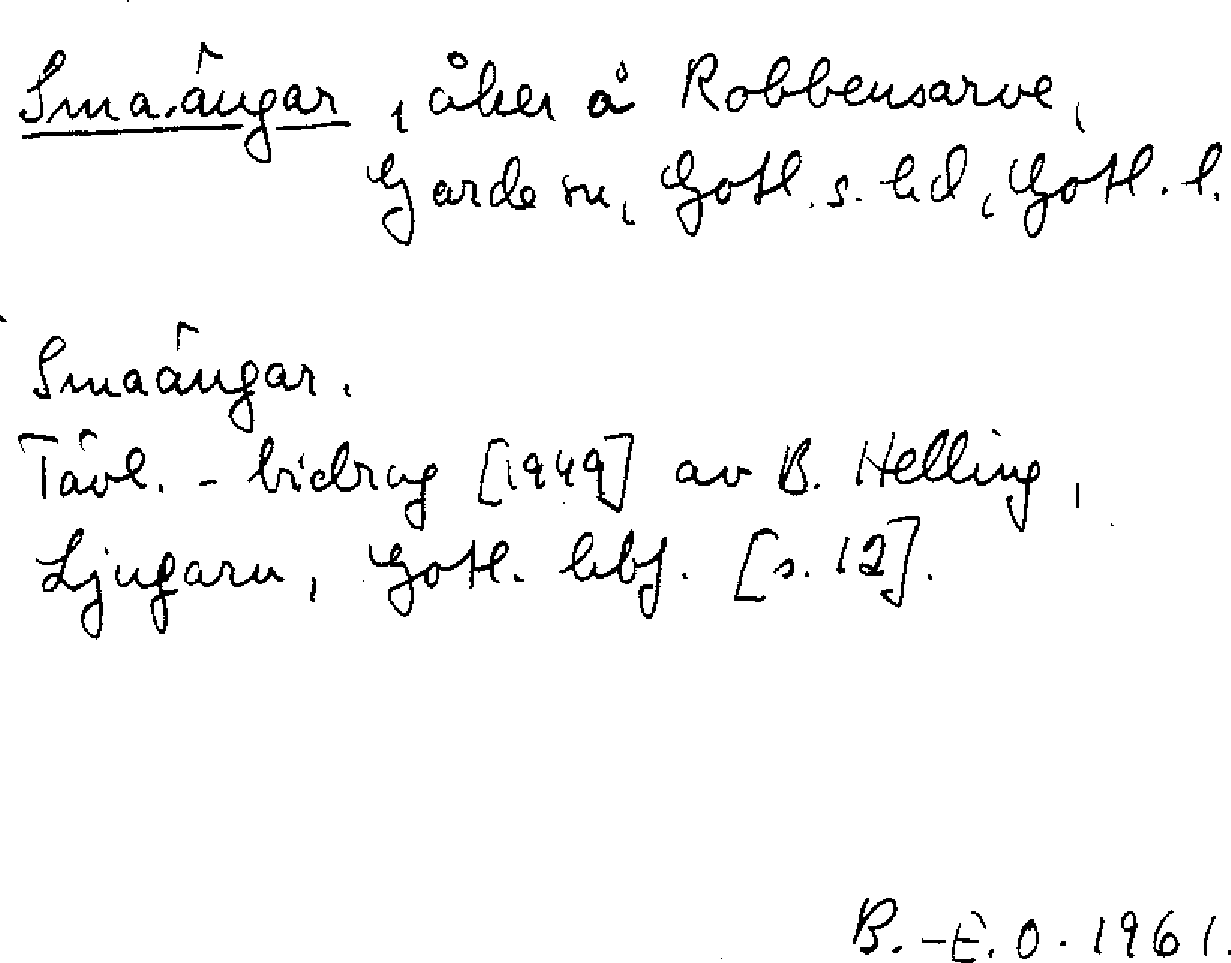 Smaängar, åker å Robbensarve,
Garde sn, Gotl. s. hd, Gotl. l.
Smaängar.
Tävl.-bidrag [1949] av B. Helling,
Ljugarn, Gotl. hbf. [s. 12].
B.-E. O. 1961.